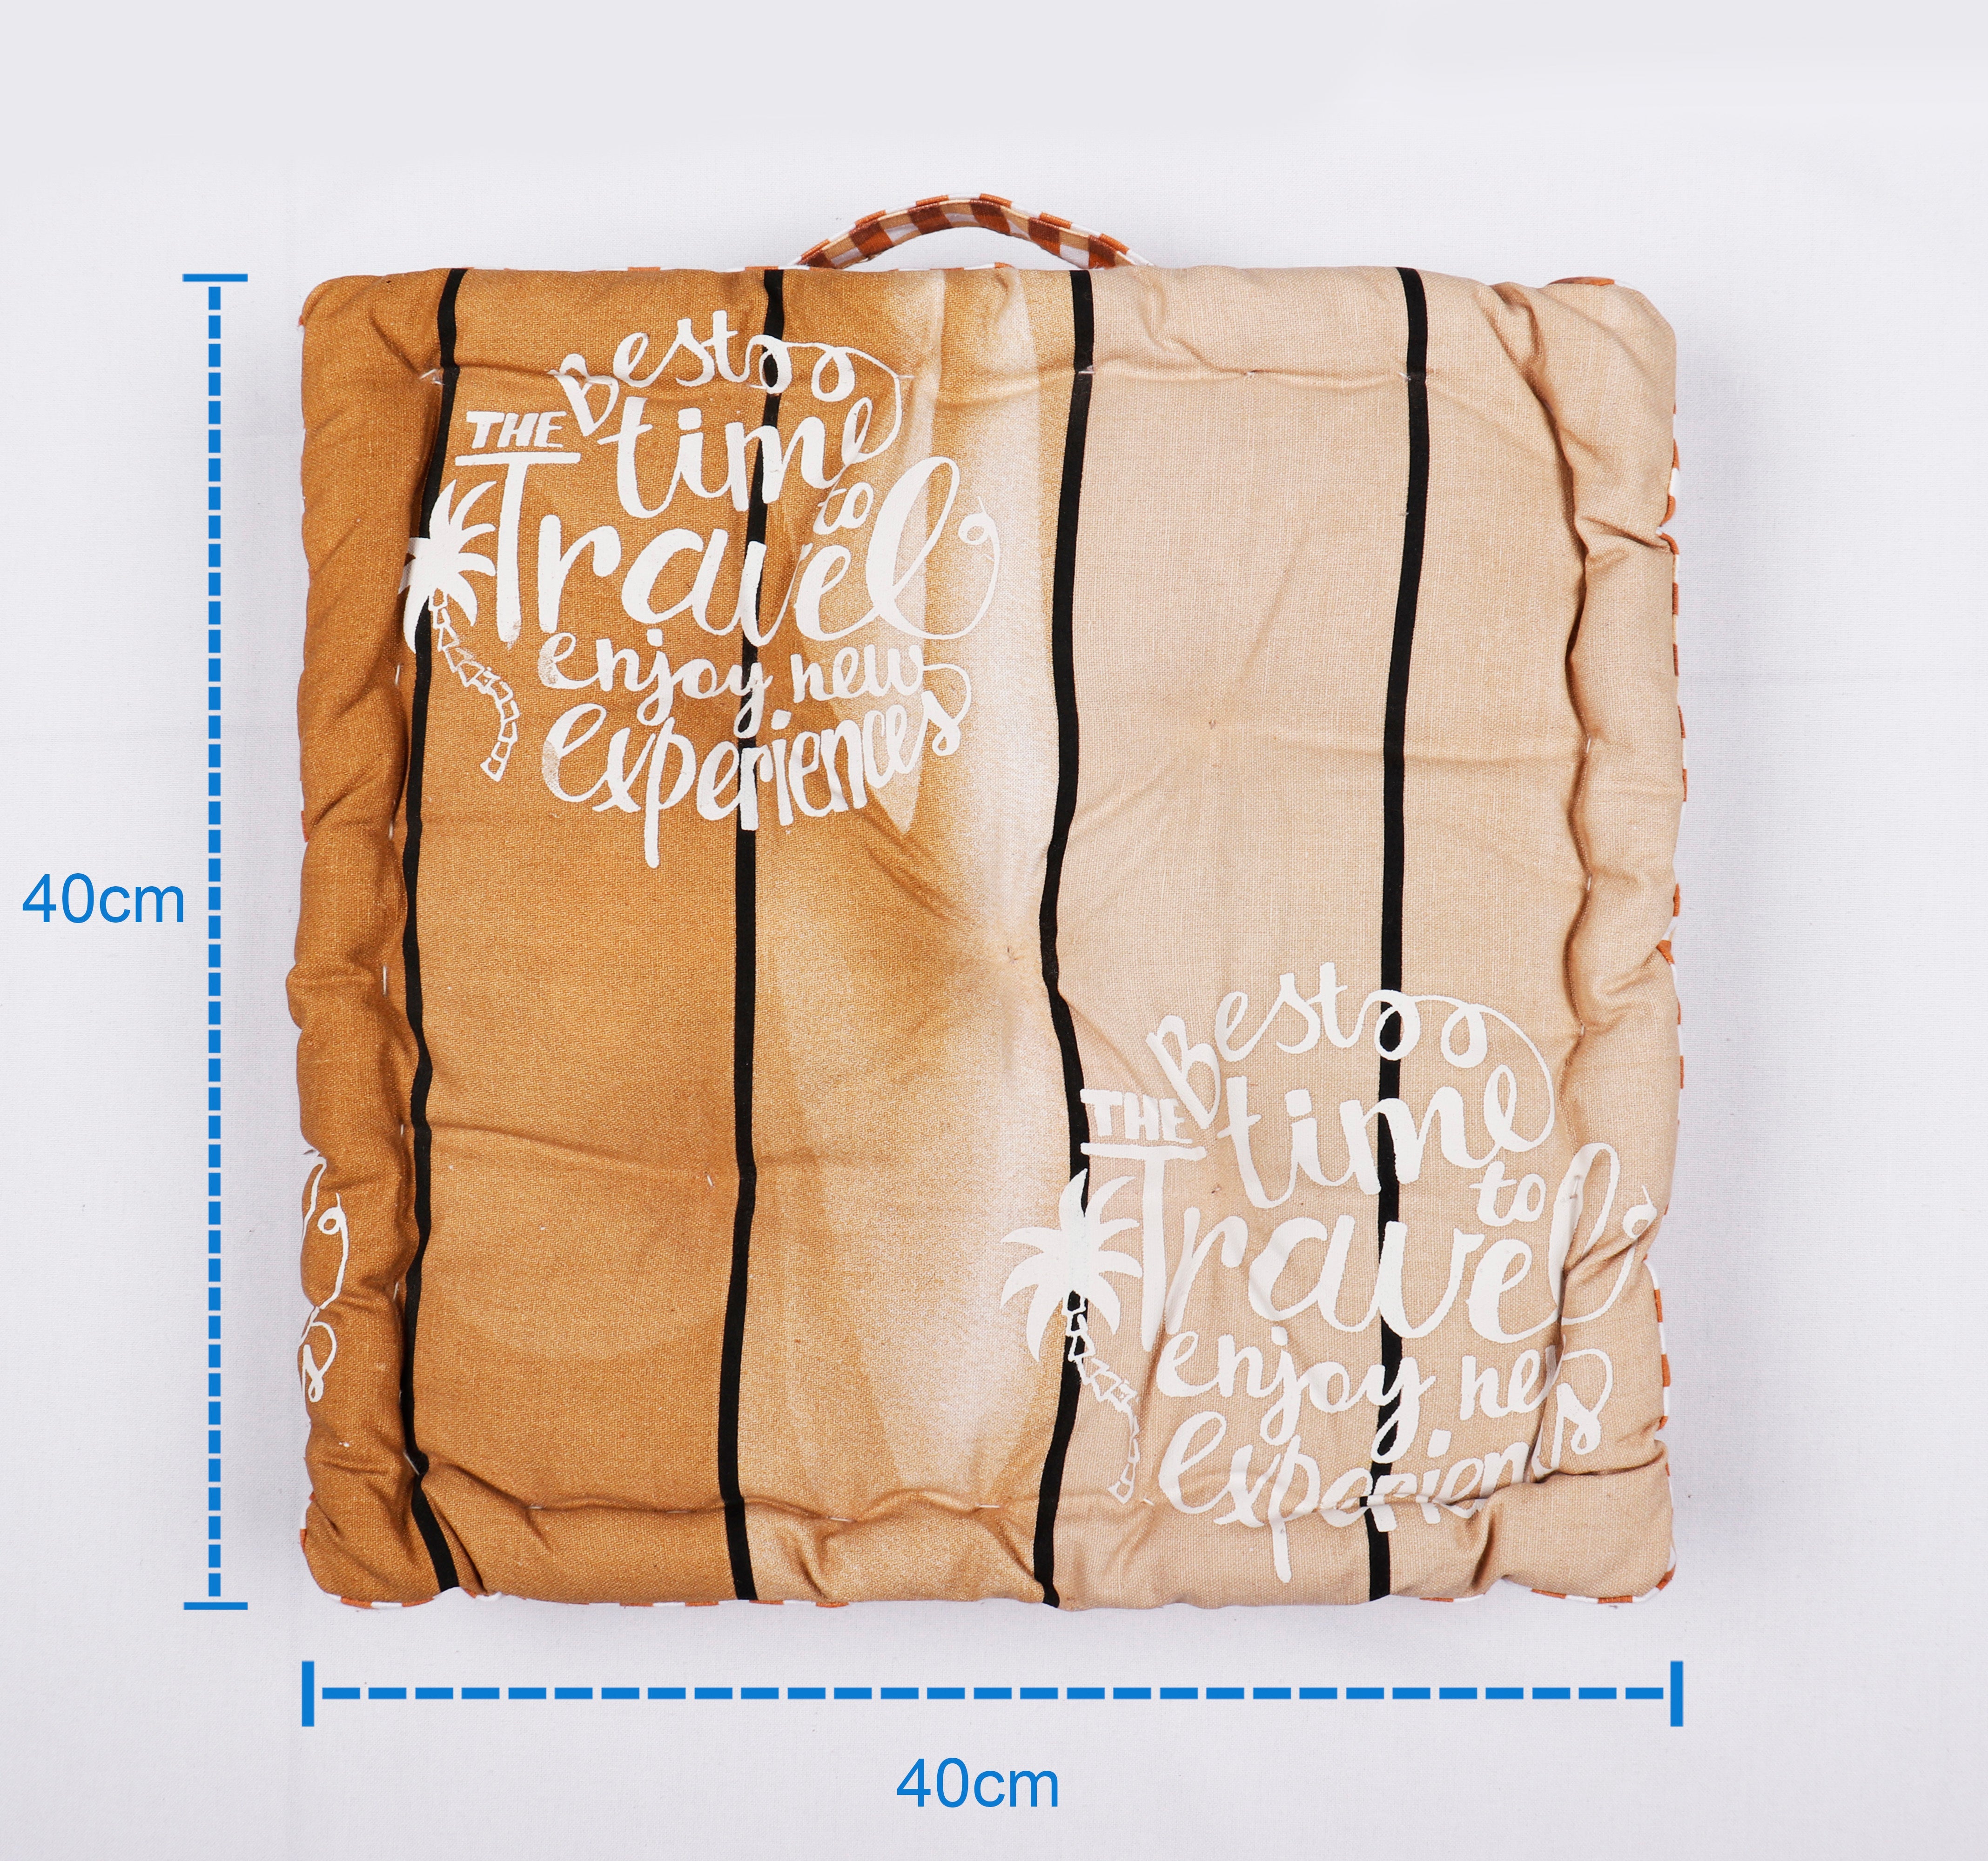 Best
THE time
to
Travel
enjoy new
experiences
40cm
Best
THE time
to
Travel
enjoy new
experiences
40cm